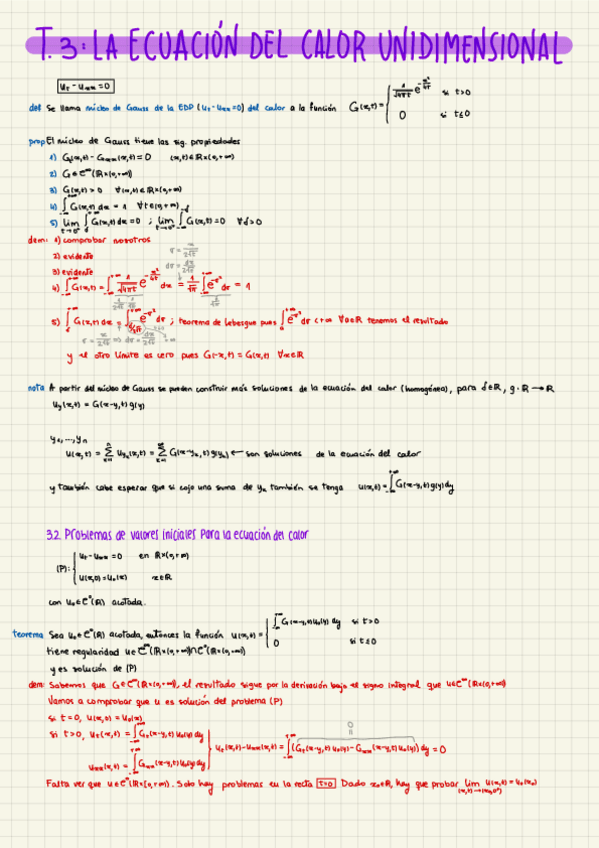 T.3: LA ECUACIÓN DEL CALOR UNIDIMENSIONAL
u_t - u_xx = 0
def Se llama núcleo de Gauss de la EDP (u_t - u_xx = 0) del calor a la función G(x,t) = { 1/√(4πt) e^(-x²/4t) si t>0
0 si t≤0
prop El núcleo de Gauss tiene las sig. propiedades
1) G_t(x,t) - G_xx(x,t) = 0 (x,t)∈ℝ×(0,+∞)
2) G∈C^∞(ℝ×(0,+∞))
3) G(x,t) > 0 ∀(x,t)∈ℝ×(0,+∞)
4) ∫_{-∞}^{+∞} G(x,t) dx = 1 ∀t∈(0,+∞)
5) lim_{t→0⁺} ∫_δ^{+∞} G(x,t) dx = 0 ; lim_{t→0⁺} ∫_{-∞}^{-δ} G(x,t) = 0 ∀δ>0
dem: 1) comprobar nosotros
2) evidente
σ = x/2√t
3) evidente
dσ = dx/2√t
4) ∫_{-∞}^{+∞} G(x,t) = ∫_{-∞}^{+∞} 1/√(4πt) e^(-x²/4t) dx = 1/√π ∫_{-∞}^{+∞} e^(-σ²) dσ = 1
5) ∫_δ^{+∞} G(x,t) dx = ∫_{δ/2√t}^{+∞} e^(-σ²) dσ ; teorema de Lebesgue pues ∫_a^{+∞} e^(-σ²) dσ < +∞ ∀a∈ℝ tenemos el resultado
σ = x/2√t ⇒ dσ = dx/2√t
y el otro límite es cero pues G(-x,t) = G(x,t) ∀x∈ℝ
nota A partir del núcleo de Gauss se pueden construir más soluciones de la ecuación del calor (homogénea), para y∈ℝ, g: ℝ → ℝ
u_y(x,t) = G(x-y,t) g(y)
y₁,...,y_n
u(x,t) = Σ u_{y_k}(x,t) = Σ G(x-y_k,t) g(y_k) ← son soluciones de la ecuación del calor
y también cabe esperar que si cojo una suma de y_k también se tenga u(x,t) = ∫_{-∞}^{+∞} G(x-y,t) g(y) dy
3.2. Problemas de valores iniciales para la ecuación del calor
(P): { u_t - u_xx = 0 en ℝ×(0,+∞)
u(x,0) = u₀(x) x∈ℝ
con u₀∈C⁰(ℝ) acotada.
teorema Sea u₀∈C⁰(ℝ) acotada, entonces la función u(x,t) = { ∫_{-∞}^{+∞} G(x-y,t) u₀(y) dy si t>0
0 si t≤0
tiene regularidad u∈C^∞(ℝ×(0,+∞))∩C⁰(ℝ×[0,+∞))
y es solución de (P)
dem: Sabemos que G∈C^∞(ℝ×(0,+∞)), el resultado sigue por la derivación bajo el signo integral que u∈C^∞(ℝ×(0,+∞))
Vamos a comprobar que u es solución del problema (P)
si t=0, u(x,t) = u₀(x)
si t>0, u_t(x,t) = ∫_{-∞}^{+∞} G_t(x-y,t) u₀(y) dy
u_xx(x,t) = ∫_{-∞}^{+∞} G_xx(x-y,t) u₀(y) dy } u_t(x,t) - u_xx(x,t) = ∫_{-∞}^{+∞} (G_t(x-y,t) u₀(y) - G_xx(x-y,t) u₀(y)) dy = 0
Falta ver que u∈C⁰(ℝ×[0,+∞)). Solo hay problemas en la recta t=0 Dado x₀∈ℝ, hay que probar lim_{(x,t)→(x₀,0⁺)} u(x,t) = u₀(x₀)